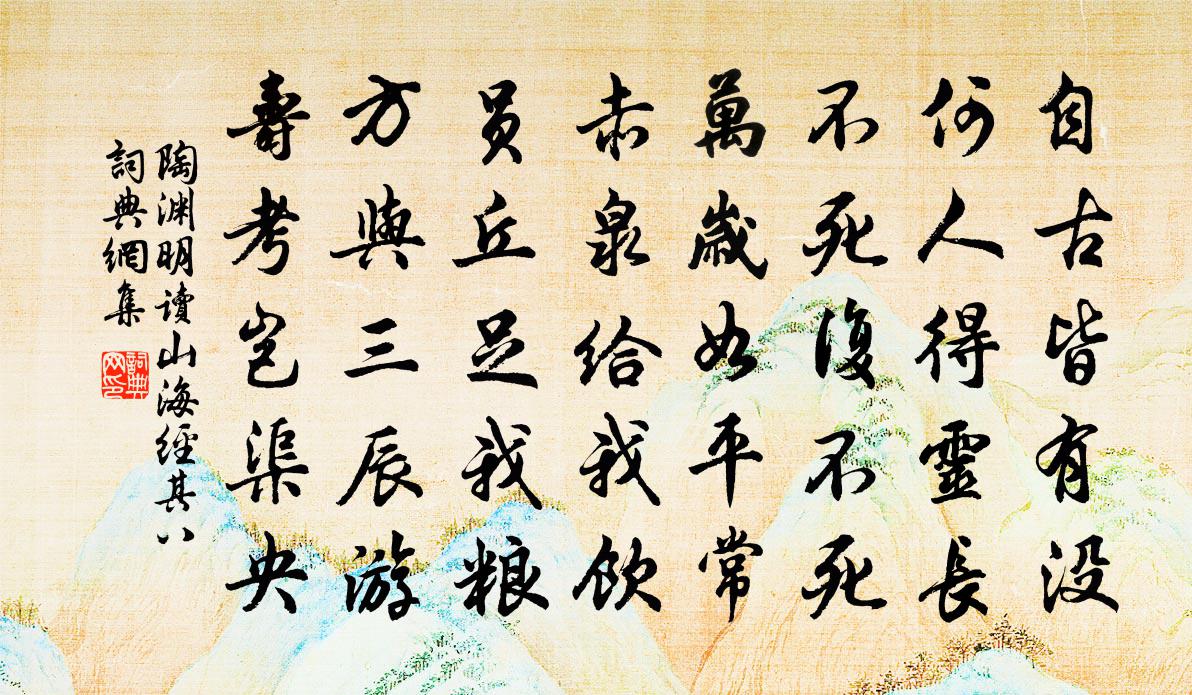 自古皆有没
何人得靈長
不死復不死
萬歲如平常
赤泉給我飲
員丘足我粮
方與三辰游
壽考豈渠央
陶渊明讀山海經其八
詞典網集
詞典网印